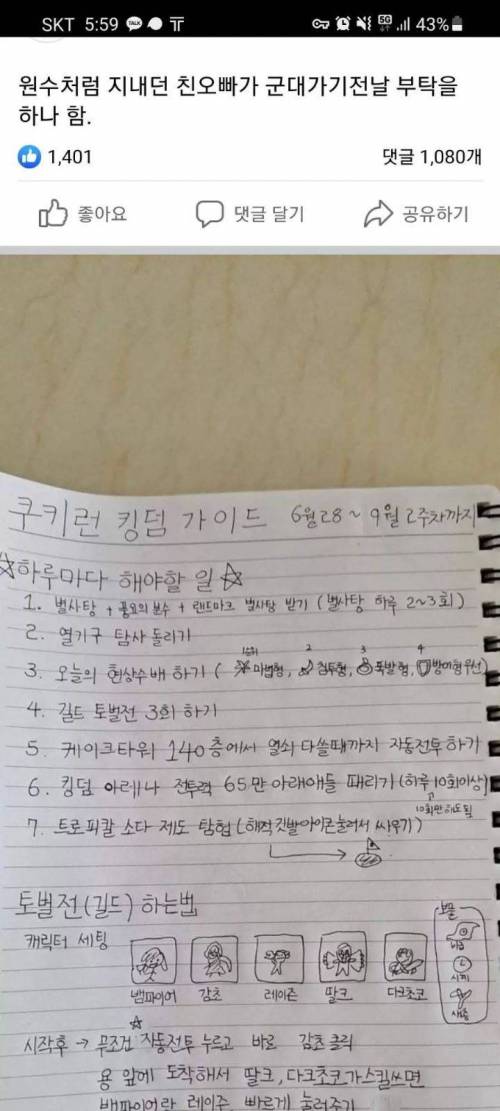 SKT 5:59 TALK 5G 43%
원수처럼 지내던 친오빠가 군대가기전날 부탁을
하나 함.
1,401 댓글 1,080개
좋아요 댓글 달기 공유하기
쿠키런 킹덤 가이드 6월28 ~ 9월 2주차까지
☆하루마다 해야할 일☆
1. 별사탕 + 풍요의 분수 + 랜드마크 별사탕 받기 (별사탕 하루 2~3회)
2. 열기구 탐사 돌리기
3. 오늘의 현상수배 하기 ( 1순위 마법형, 2 침투형, 3 폭발형, 4 방어형 우선)
4. 길드 토벌전 3회 하기
5. 케이크타워 140층에서 열쇠 다쓸때까지 자동전투하기
6. 킹덤 아레나 전투력 65만 아래애들 때리기 (하루 10회이상)
10회만 해도 됨
7. 트로피칼 소다 제도 탐험 (해적깃발아이콘눌러서 싸우기)
토벌전(길드) 하는법
보물
캐릭터 세팅
시계
뱀파이어 감초 레이즌 딸크 다크초코
시작후 → 무조건 자동전투 누르고 바로 감초클릭
용 앞에 도착해서 딸크, 다크초코가스킬쓰면
뱀파이어랑 레이즌 빠르게 눌러주기